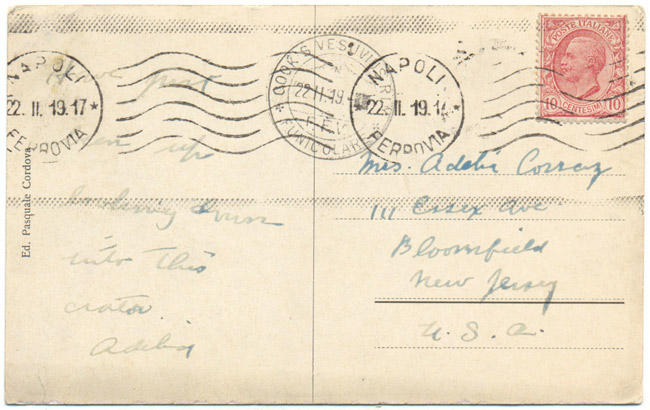 POSTE ITALIANE
10 CENTESIMI 10
NAPOLI
22.II.19.17
FERROVIA
COOK'S VESUVIUS
22 II 19
FUNICOLARE
NAPOLI
22.II.19.17
FERROVIA
Ed. Pasquale Cordova
Have just
been up
looking down
into this
crater.
Mrs.
111 Essex Ave
Bloomfield
New Jersey
U. S. A.